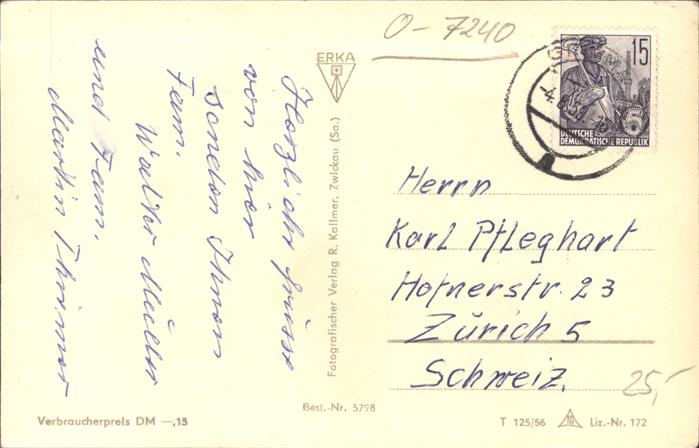 O-7240
ERKA
15
DEUTSCHE
DEMOKRATISCHE REPUBLIK
5
Herzliche Grüsse
von hier
senden Ihnen
Fam.
Walter Müller
und Fam.
Martin
Fotografischer Verlag R. Kallmer, Zwickau (Sa.)
Herrn
Karl Pfleghart
Hofnerstr. 23
Zürich 5
Schweiz.
25,-
Verbraucherpreis DM —,15
Best.-Nr. 5798
T 125/56
Liz.-Nr. 172